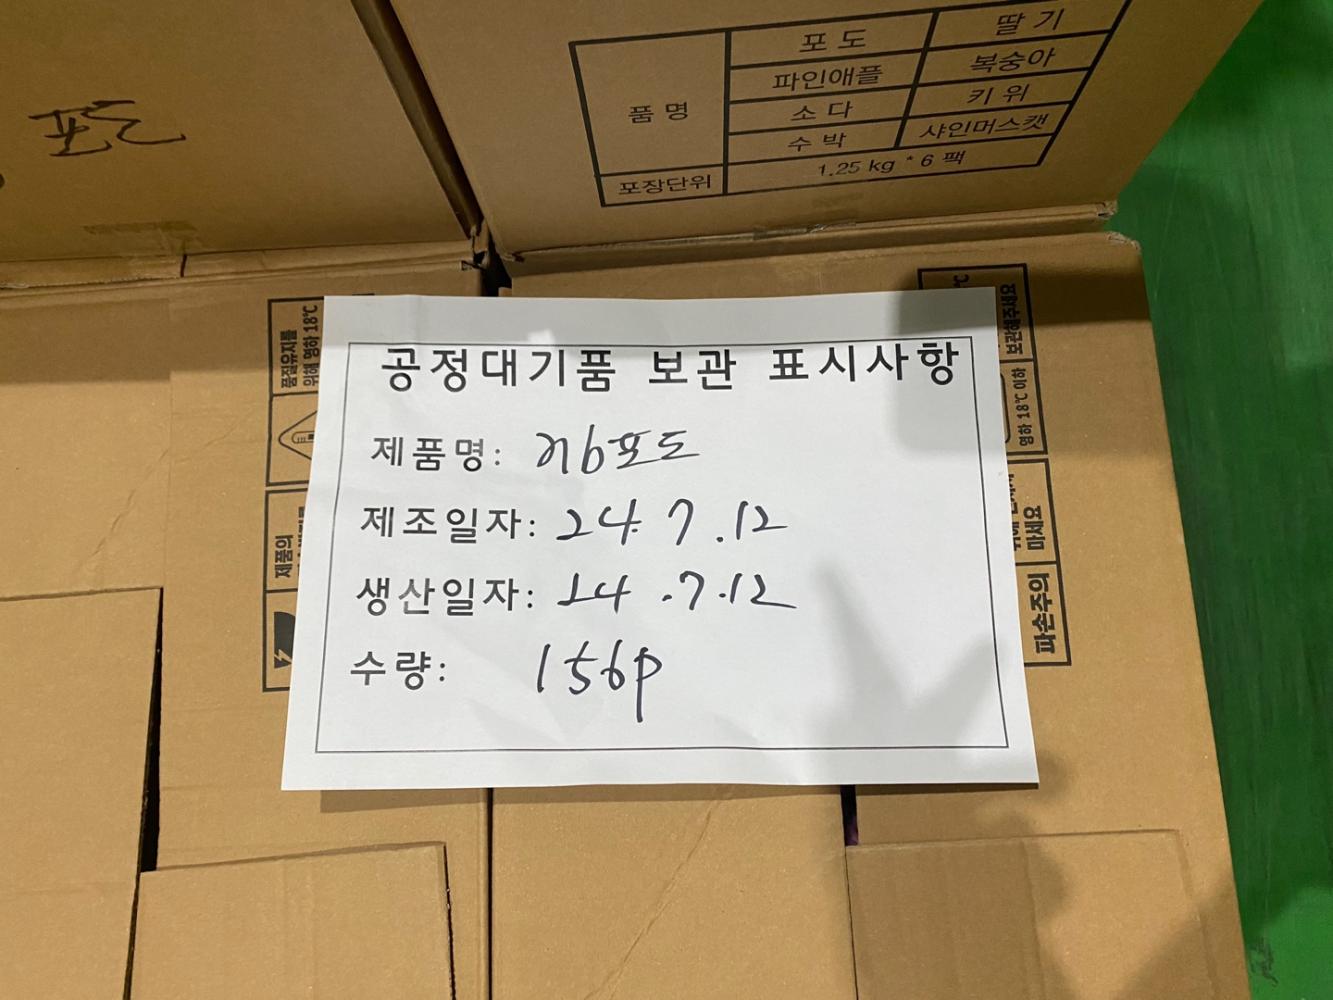 포도
딸기
파인애플
복숭아
품명
소다
키위
수박
샤인머스캣
포장단위
1.25 kg * 6 팩
품질유지를
위해 영하 18℃
제품의
공정대기품 보관 표시사항
제품명: 포도
제조일자: 24. 7. 12
생산일자: 24. 7. 12
수량: 156p
보관해주세요
영하 18℃ 이하
마세요
파손주의